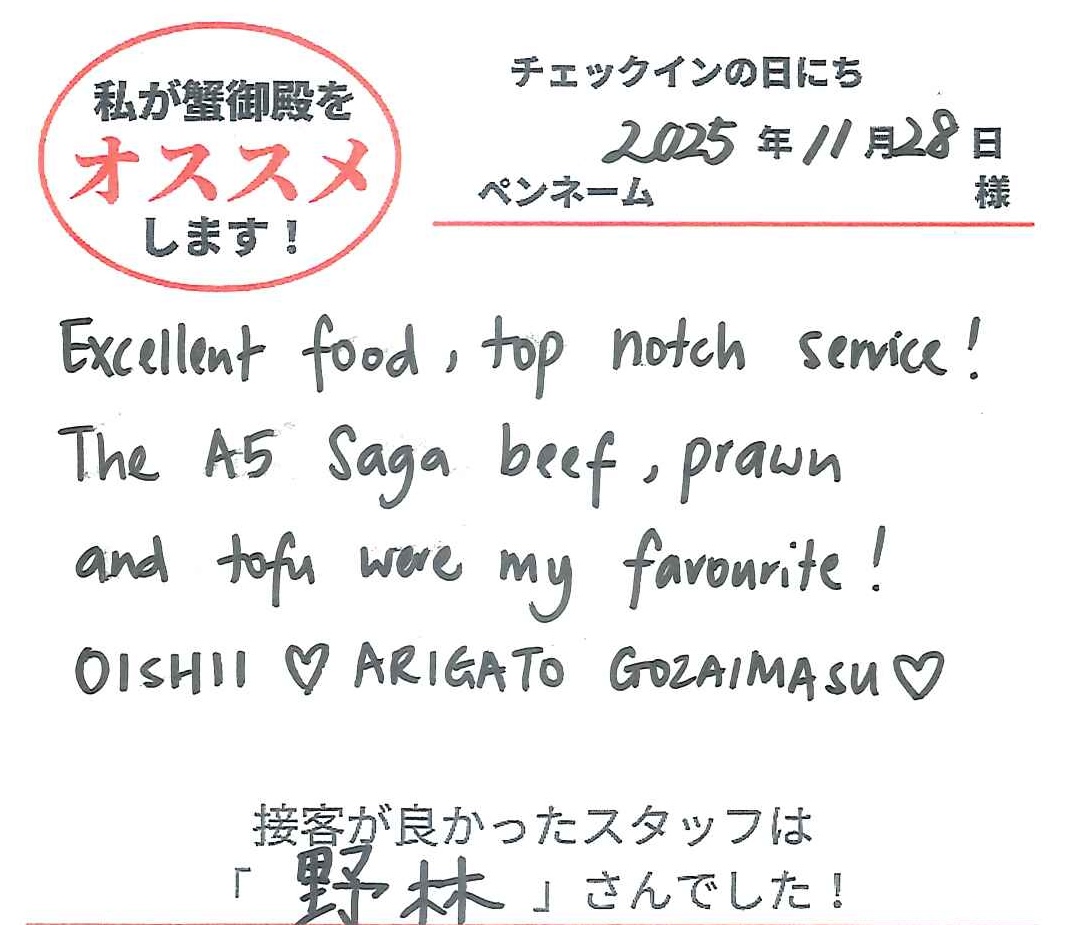 私が蟹御殿を
オススメ
します！
チェックインの日にち
2025年11月28日
ペンネーム 様
Excellent food, top notch service!
The A5 Saga beef, prawn
and tofu were my favourite!
OISHII ♡ ARIGATO GOZAIMASU ♡
接客が良かったスタッフは
「野林」さんでした！